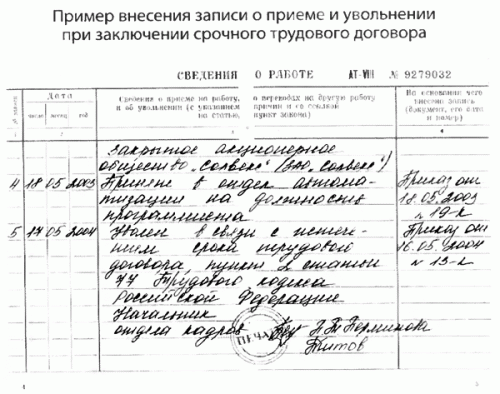 Пример внесения записи о приеме и увольнении
при заключении срочного трудового договора
СВЕДЕНИЯ О РАБОТЕ АТ-VIII № 9279032
№ записи
Дата
число месяц год
Сведения о приеме на работу, о переводах на другую работу
и об увольнении (с указанием причин и со ссылкой
на статью, пункт закона)
На основании чего
внесена запись
(документ, его дата
и номер)
2 4
Закрытое акционерное
общество „Солвекс" (ЗАО „Солвекс")
4 18 05 2003 Принят в отдел автома- Приказ от
тизации на должность 18.05.2003
программиста № 19-к
5 17 05 2004 Уволен в связи с истече- Приказ от
нием срока трудового 16.05.2004
договора, пункт 2 статьи № 13-к
77 Трудового кодекса
Российской Федерации
Начальник
отдела кадров ПЕЧАТЬ Н.Т. Перминова
Титов